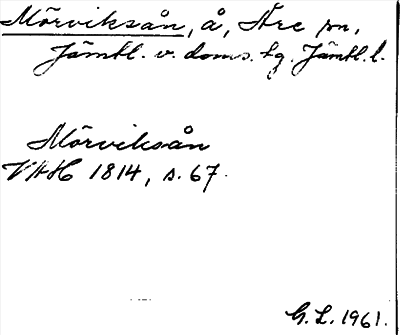 Mörviksån, å, Åre sn,
Jämtl. v. doms. tg. Jämtl. l.
Mörviksån
VAH 1814, s. 67.
G. L. 1961.